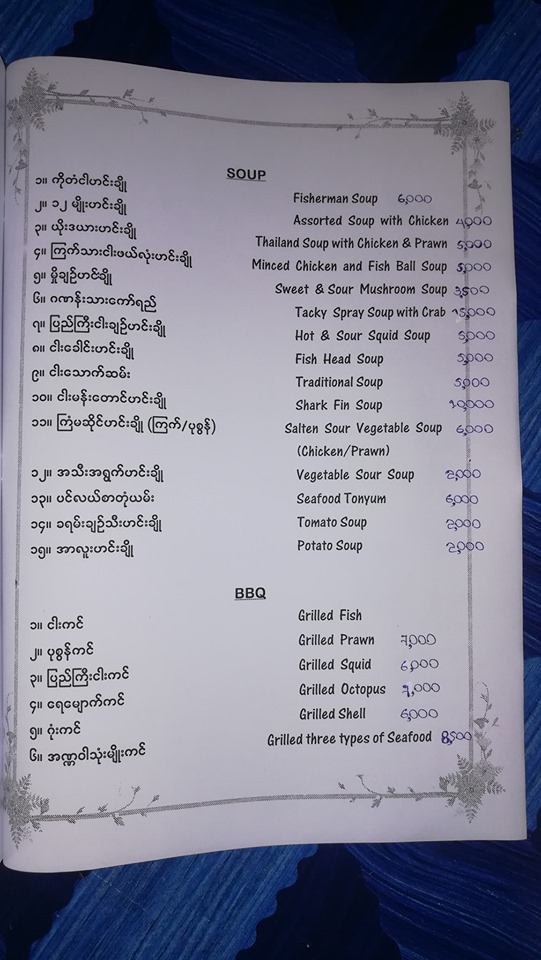 SOUP
၁။ ကိုတံငါဟင်းချို Fisherman Soup 6,000
၂။ ၁၂ မျိုးဟင်းချို Assorted Soup with Chicken 4,000
၃။ ယိုးဒယားဟင်းချို Thailand Soup with Chicken & Prawn 5,000
၄။ ကြက်သားငါးဖယ်လုံးဟင်းချို Minced Chicken and Fish Ball Soup 5,000
၅။ မှိုချဉ်ဟင်ချို Sweet & Sour Mushroom Soup 3,500
၆။ ဂဏန်းသားကော်ရည် Tacky Spray Soup with Crab 15,000
၇။ ပြည်ကြီးငါးချဉ်ဟင်းချို Hot & Sour Squid Soup 5,000
၈။ ငါးခေါင်းဟင်းချို Fish Head Soup 5,000
၉။ ငါးသောက်ဆမ်း Traditional Soup 5,000
၁၀။ ငါးမန်းတောင်ဟင်းချို Shark Fin Soup 10,000
၁၁။ ကြံမဆိုင်ဟင်းချို (ကြက်/ပုစွန်) Salten Sour Vegetable Soup 6,000
(Chicken/Prawn)
၁၂။ အသီးအရွက်ဟင်းချို Vegetable Sour Soup 2,000
၁၃။ ပင်လယ်စာတုံယမ်း Seafood Tonyum 6,000
၁၄။ ခရမ်းချဉ်သီးဟင်းချို Tomato Soup 2,000
၁၅။ အာလူးဟင်းချို Potato Soup 2,000
BBQ
၁။ ငါးကင် Grilled Fish
၂။ ပုစွန်ကင် Grilled Prawn 7,000
၃။ ပြည်ကြီးငါးကင် Grilled Squid 6,000
၄။ ရေမျောက်ကင် Grilled Octopus 7,000
၅။ ဂုံးကင် Grilled Shell 6,000
၆။ အဏ္ဏဝါသုံးမျိုးကင် Grilled three types of Seafood 8,500